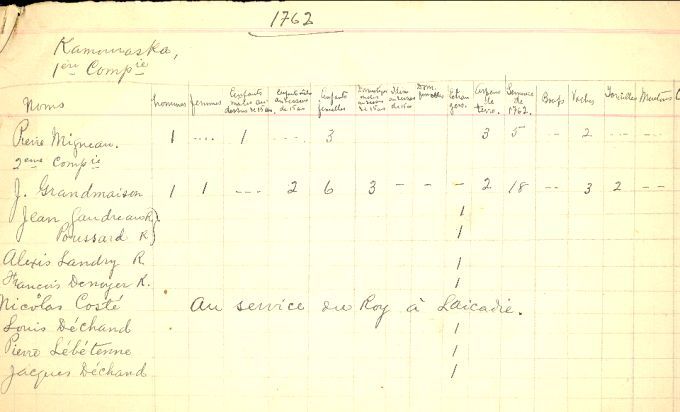 1762
Kamouraska,
1ère Compie
Noms hommes femmes Enfants males au dessus de 15 ans. enfants males au dessous de 15 ans Enfants femelles Domestiques males au dessus de 15 ans Idem au dessous de 15 ans Dom. femelles Etrangers. Arpens de terre. Semence de 1762. Boeufs Vaches Taurailles Moutons C
Pierre Migneau. 1 --- 1 --- 3 3 5 -- 2 -- --
2eme Compie
J. Grandmaison 1 1 --- 2 6 3 - - - 2 18 -- 3 2 --
Jean Gaudreau R. } 1
Poussard R } 1
Alexis Landry R. 1
Francois Denoyer R. 1
Nicolas Costé Au service du Roy à Laicadie.
Louis Déchand 1
Pierre Lébétenne 1
Jacques Déchand 1